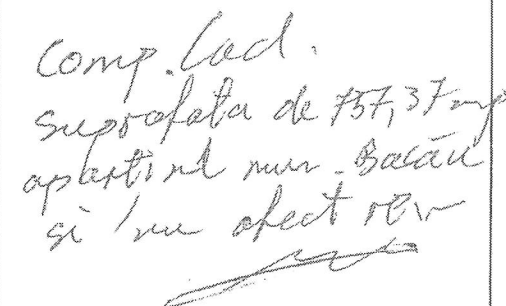 Comp. Cad.
suprafata de 757,37 mp
apartine mun. Bacău
si nu afect rev